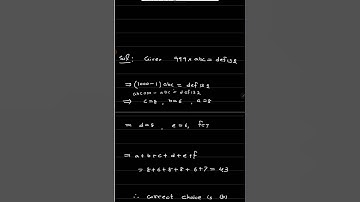 Sol: Given 999 x abc = def132
⇒ (1000-1) abc = def132
abc000 - abc = def132
⇒ c=8, b=6, a=8
⇒ d=8, e=6, f=7
⇒ a+b+c+d+e+f
= 8+6+8+8+6+7 = 43
∴ correct choice is (b)